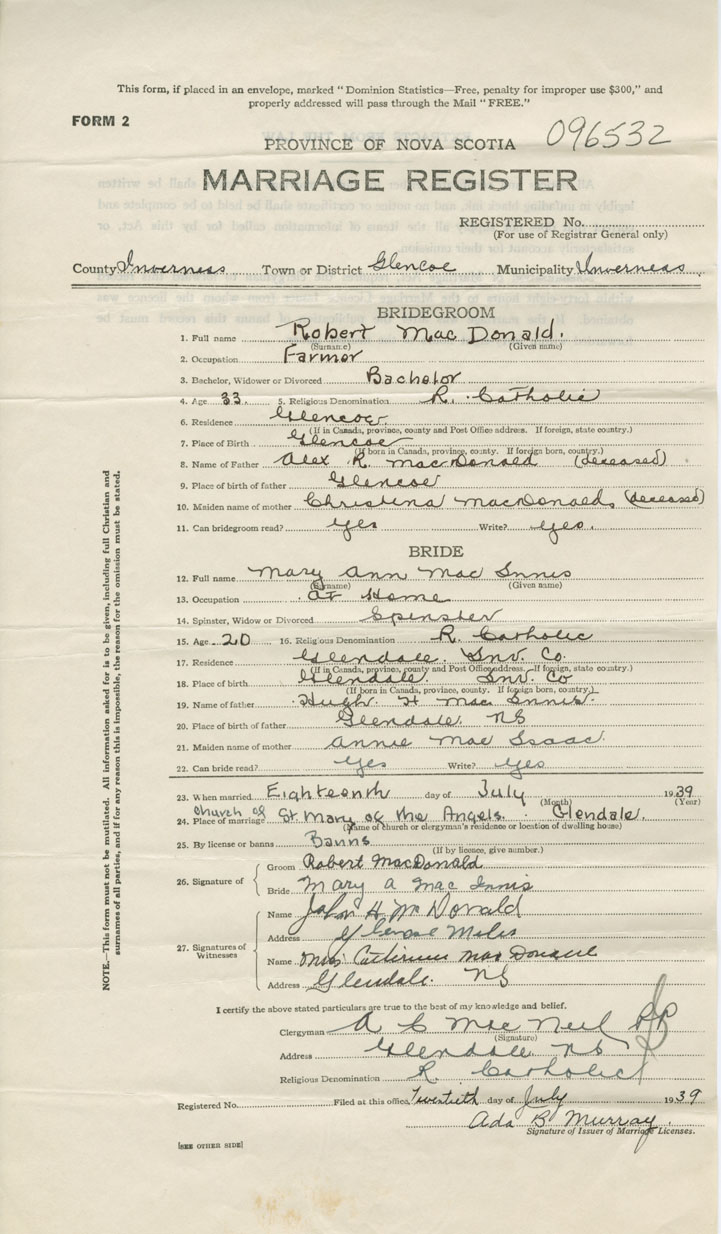 This form, if placed in an envelope, marked "Dominion Statistics—Free, penalty for improper use $300," and
properly addressed will pass through the Mail "FREE."
FORM 2
096532
PROVINCE OF NOVA SCOTIA
MARRIAGE REGISTER
REGISTERED No.
(For use of Registrar General only)
County Inverness Town or District Glencoe Municipality Inverness
BRIDEGROOM
1. Full name Robert MacDonald.
(Surname) (Given name)
2. Occupation Farmer
3. Bachelor, Widower or Divorced Bachelor
4. Age 33. 5. Religious Denomination R. Catholic
6. Residence Glencoe
(If in Canada, province, county and Post Office address. If foreign, state country.)
7. Place of Birth Glencoe
(If born in Canada, province, county. If foreign born, country.)
8. Name of Father Alex R. MacDonald (deceased)
9. Place of birth of father Glencoe
10. Maiden name of mother Christina MacDonald, (deceased)
11. Can bridegroom read? yes Write? yes.
BRIDE
12. Full name Mary Ann Mac Innis
(Surname) (Given name)
13. Occupation At Home
14. Spinster, Widow or Divorced Spinster
15. Age 20 16. Religious Denomination R. Catholic
17. Residence Glendale. Inv. Co.
(If in Canada, province, county and Post Office address. If foreign, state country.)
18. Place of birth Glendale Inv. Co
(If born in Canada, province, county. If foreign born, country.)
19. Name of father Hugh H Mac Innis.
20. Place of birth of father Glendale. NS
21. Maiden name of mother Annie Mac Isaac.
22. Can bride read? yes Write? yes
23. When married Eighteenth day of July 1939
(Month) (Year)
24. Place of marriage Church of St Mary of the Angels. Glendale.
(Name of church or clergyman's residence or location of dwelling house)
25. By license or banns Banns
(If by licence, give number.)
26. Signature of Groom Robert MacDonald
Bride Mary A Mac Innis
27. Signatures of Witnesses
Name John H McDonald
Address Glencoe Mills
Name Miss MacDonald
Address Glendale. NS
I certify the above stated particulars are true to the best of my knowledge and belief.
Clergyman A C Mac Neil PP
(Signature)
Address Glendale NS
Religious Denomination R. Catholic
Registered No. Filed at this office, Twentieth day of July 1939
Ada B Murray.
Signature of Issuer of Marriage Licenses.
[SEE OTHER SIDE]
NOTE.—This form must not be mutilated. All information asked for is to be given, including full Christian and
surnames of all parties, and if for any reason this is impossible, the reason for the omission must be stated.